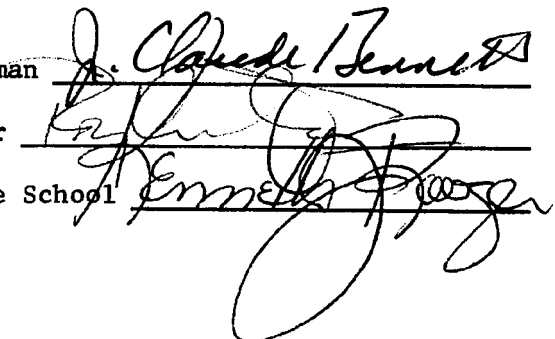 man J. Claude Bennett
r
e School Kenneth Roozen